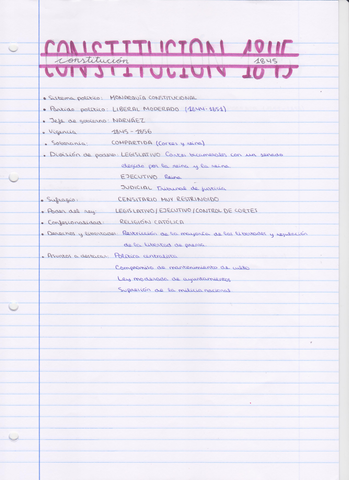 CONSTITUCION 1845
constitución 1845
• Sistema político: MONARQUÍA CONSTITUCIONAL
• Partido político: LIBERAL MODERADO (1844-1854)
• Jefe de gobierno: NARVÁEZ
• Vigencia: 1845-1856
• Soberanía: COMPARTIDA (Cortes y reina)
• División de poderes: LEGISLATIVO Cortes bicamerales con un senado
elegido por la reina y la reina.
EJECUTIVO Reina
JUDICIAL Tribunal de justicia
• Sufragio: CENSITARIO MUY RESTRINGIDO
• Poder del rey: LEGISLATIVO/EJECUTIVO/CONTROL DE CORTES
• Confesionalidad: RELIGIÓN CATÓLICA
• Derechos y libertades: Restricción de la mayoría de las libertades y regulación
de la libertad de prensa
• A destacar: Política centralista
Compromiso de mantenimiento de culto
Ley moderada de ayuntamientos
Supresión de la milicia nacional